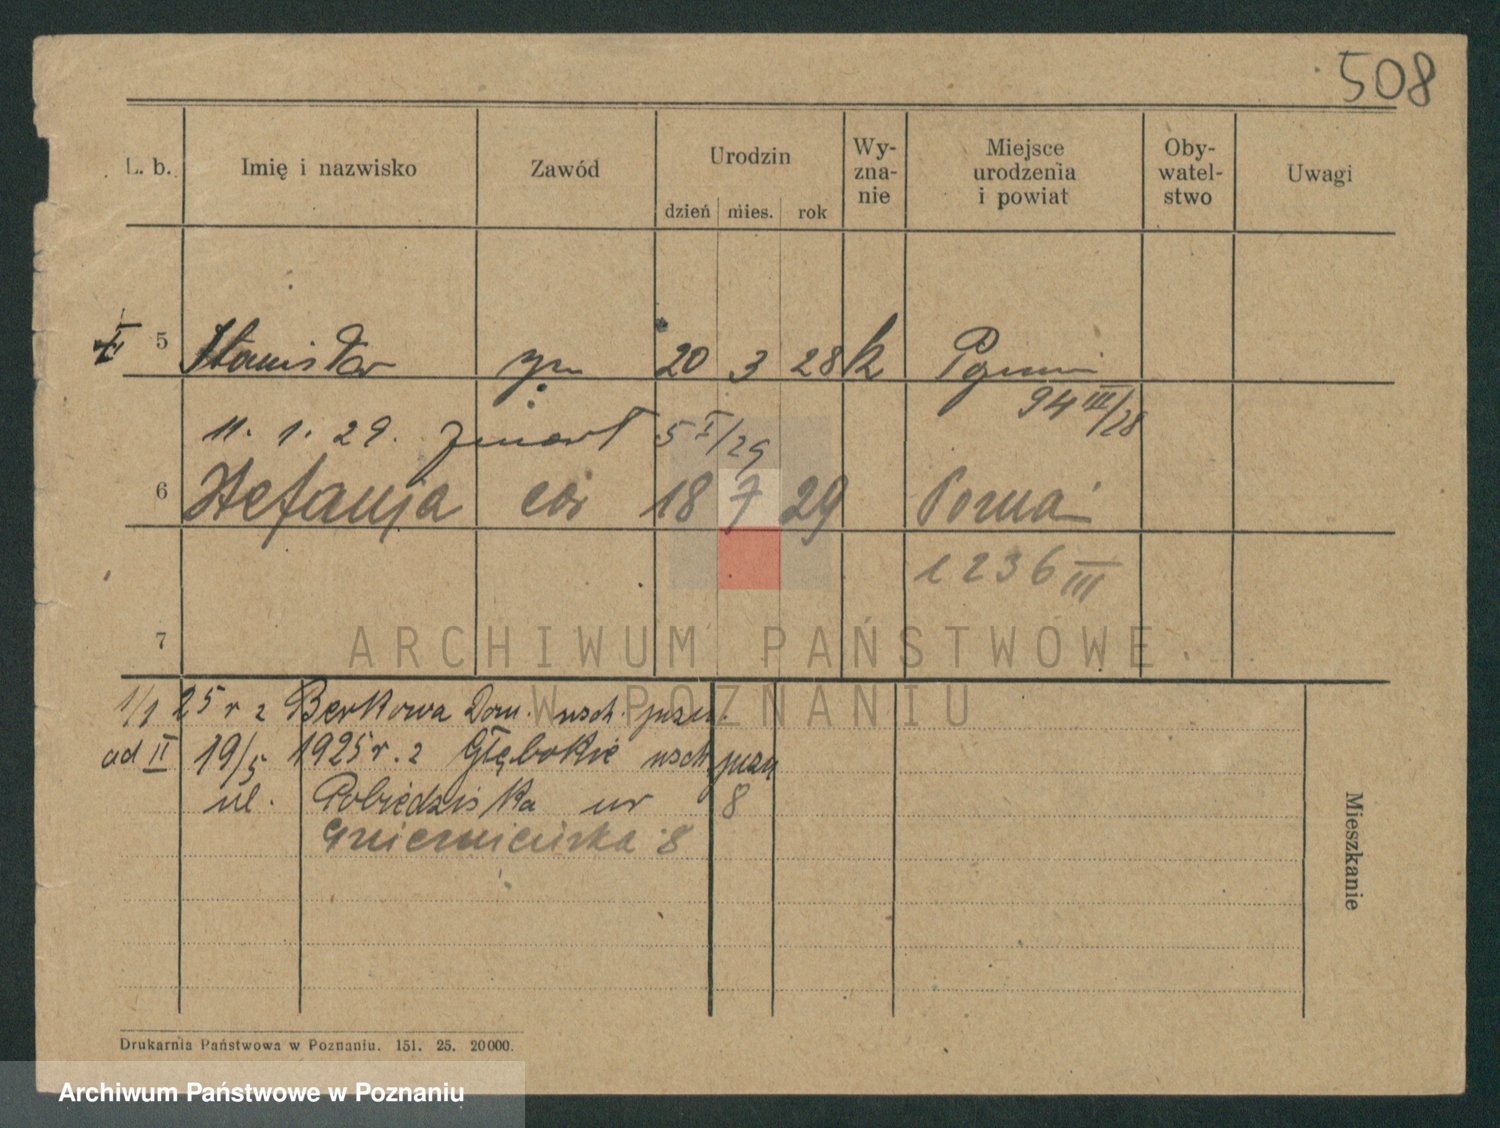 508
L. b. Imię i nazwisko Zawód Urodzin Wy-zna-nie Miejsce urodzenia i powiat Oby-watel-stwo Uwagi
dzień mies. rok
5 Stanisław syn 20 3 28 k
94 III/28
11. 1. 29. zmarł 5 I/29
6 Stefanja cór 18 7 29 Poznań
1236 III
7
ARCHIWUM PAŃSTWOWE
W POZNANIU
1/1 25 r z Berkowa Dom.
ad II 19/5 1925 r. z Głębokie
ul. Pobiedziska nr 8
Gnieźnieńska 8
Mieszkanie
Drukarnia Państwowa w Poznaniu. 151. 25. 20000.
Archiwum Państwowe w Poznaniu